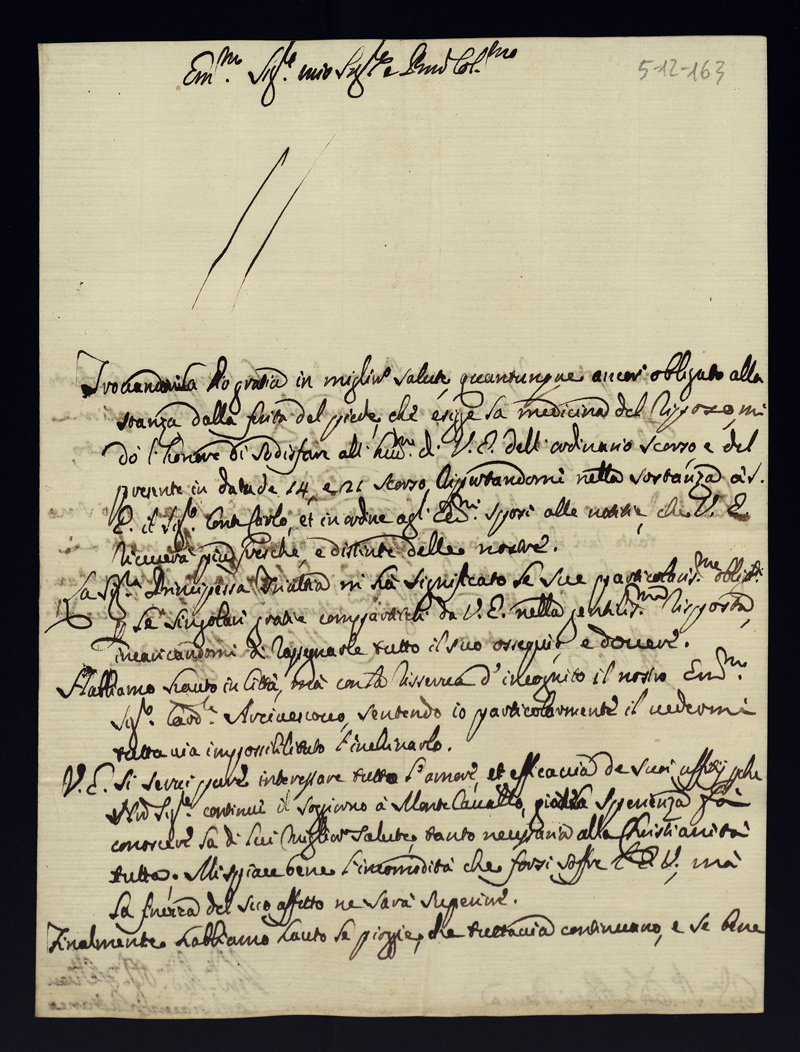 Em.mo Sig.re mio Sig.re e Pron Col.mo
5-12-163
Trovandomi la Dio gratia in miglior salute, quantunque ancor obligato alla
stanza dalla ferita del piede, che esigge la medicina del riposo, mi
do l'honore di sodisfare all' hum.me di V. E. dell' ordinario scorso e del
presente in data de 14, e 21 scorso, riportandomi nella sostanza à S.
E. il Sig.r Conte Carlo, et in ordine agl' Em.mi sposi alle notitie, che V. E.
riceverà più fresche, e distinte delle nostre.
La Sig.ra Principessa Trivultia mi hà significato le sue particolariss.me oblig.ni
p le singolari gratie compartiteli da V. E. nella gentiliss.ma risposta,
incaricandomi di rassegnarle tutto il suo ossequio, e dovere.
Habbiamo hauto in Città, mà con la riserva d'incognito il nostro Em.mo
Sig.r Card.le Arcivescovo, sentendo io particolarmente il vedermi
tuttavia impossibilitato l'inchinarlo.
V. E. si servi pure interessare tutto l'amore, et efficaccia de suoi uffitij pche
N'ro Sig.re continui il soggiorno à Monte Cavallo, già la sperienza fà
conoscere la di lui miglior salute, tanto necessaria alla Christianità
tutta. Mi spiace bene l'incomodità che forsi soffre l'E. V., mà
la forza del suo affetto ne sarà superiore.
Finalmente habbiamo hauto le pioggie, che tuttavia continuano, e se bene